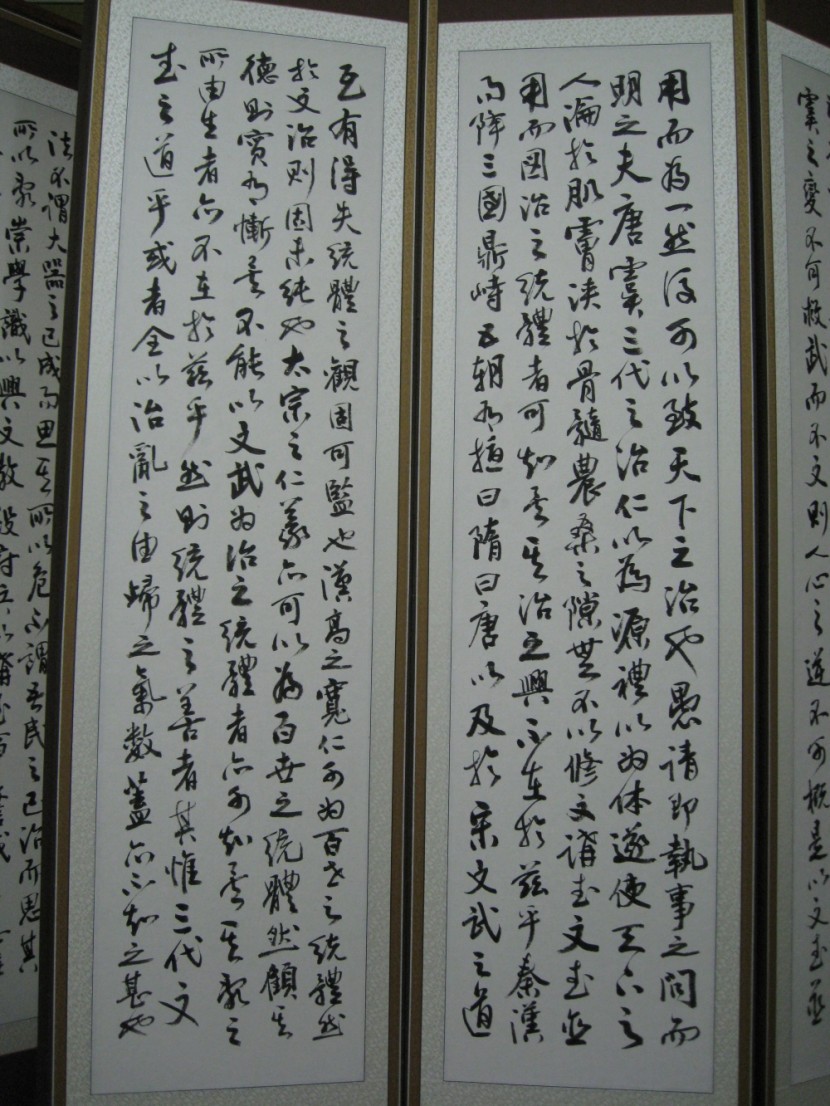 虞之變不可救武而不文則人心之逆不可極是以文武並
用而為一然後可以致天下之治也愚請即執事之問而
明之夫唐虞三代之治仁以為源禮以為体遂使天下之
人淪於肌膚浹於骨髓農桑之隙無不以修文講武文武並
用而國治之統體者可知矣其治之興亦在於茲乎秦漢
而降三國鼎峙五朝為擅曰隋曰唐以及於宋文武之道
互有得失統體之觀固可監也漢高之寬仁可為百世之統體然
於文治則固未純也太宗之仁義亦可以為百世之統體然顧其
德則實為慚矣不能以文武為治之統體者亦可知矣其亂之
所由生者亦不在於茲乎然則統體之善者其惟三代文
武之道乎或者全以治亂之由歸之氣數蓋亦不知之甚也
法不謂大器之已成而思其所以危不謂吾民之已治而思其
所以亂崇學識以興文教